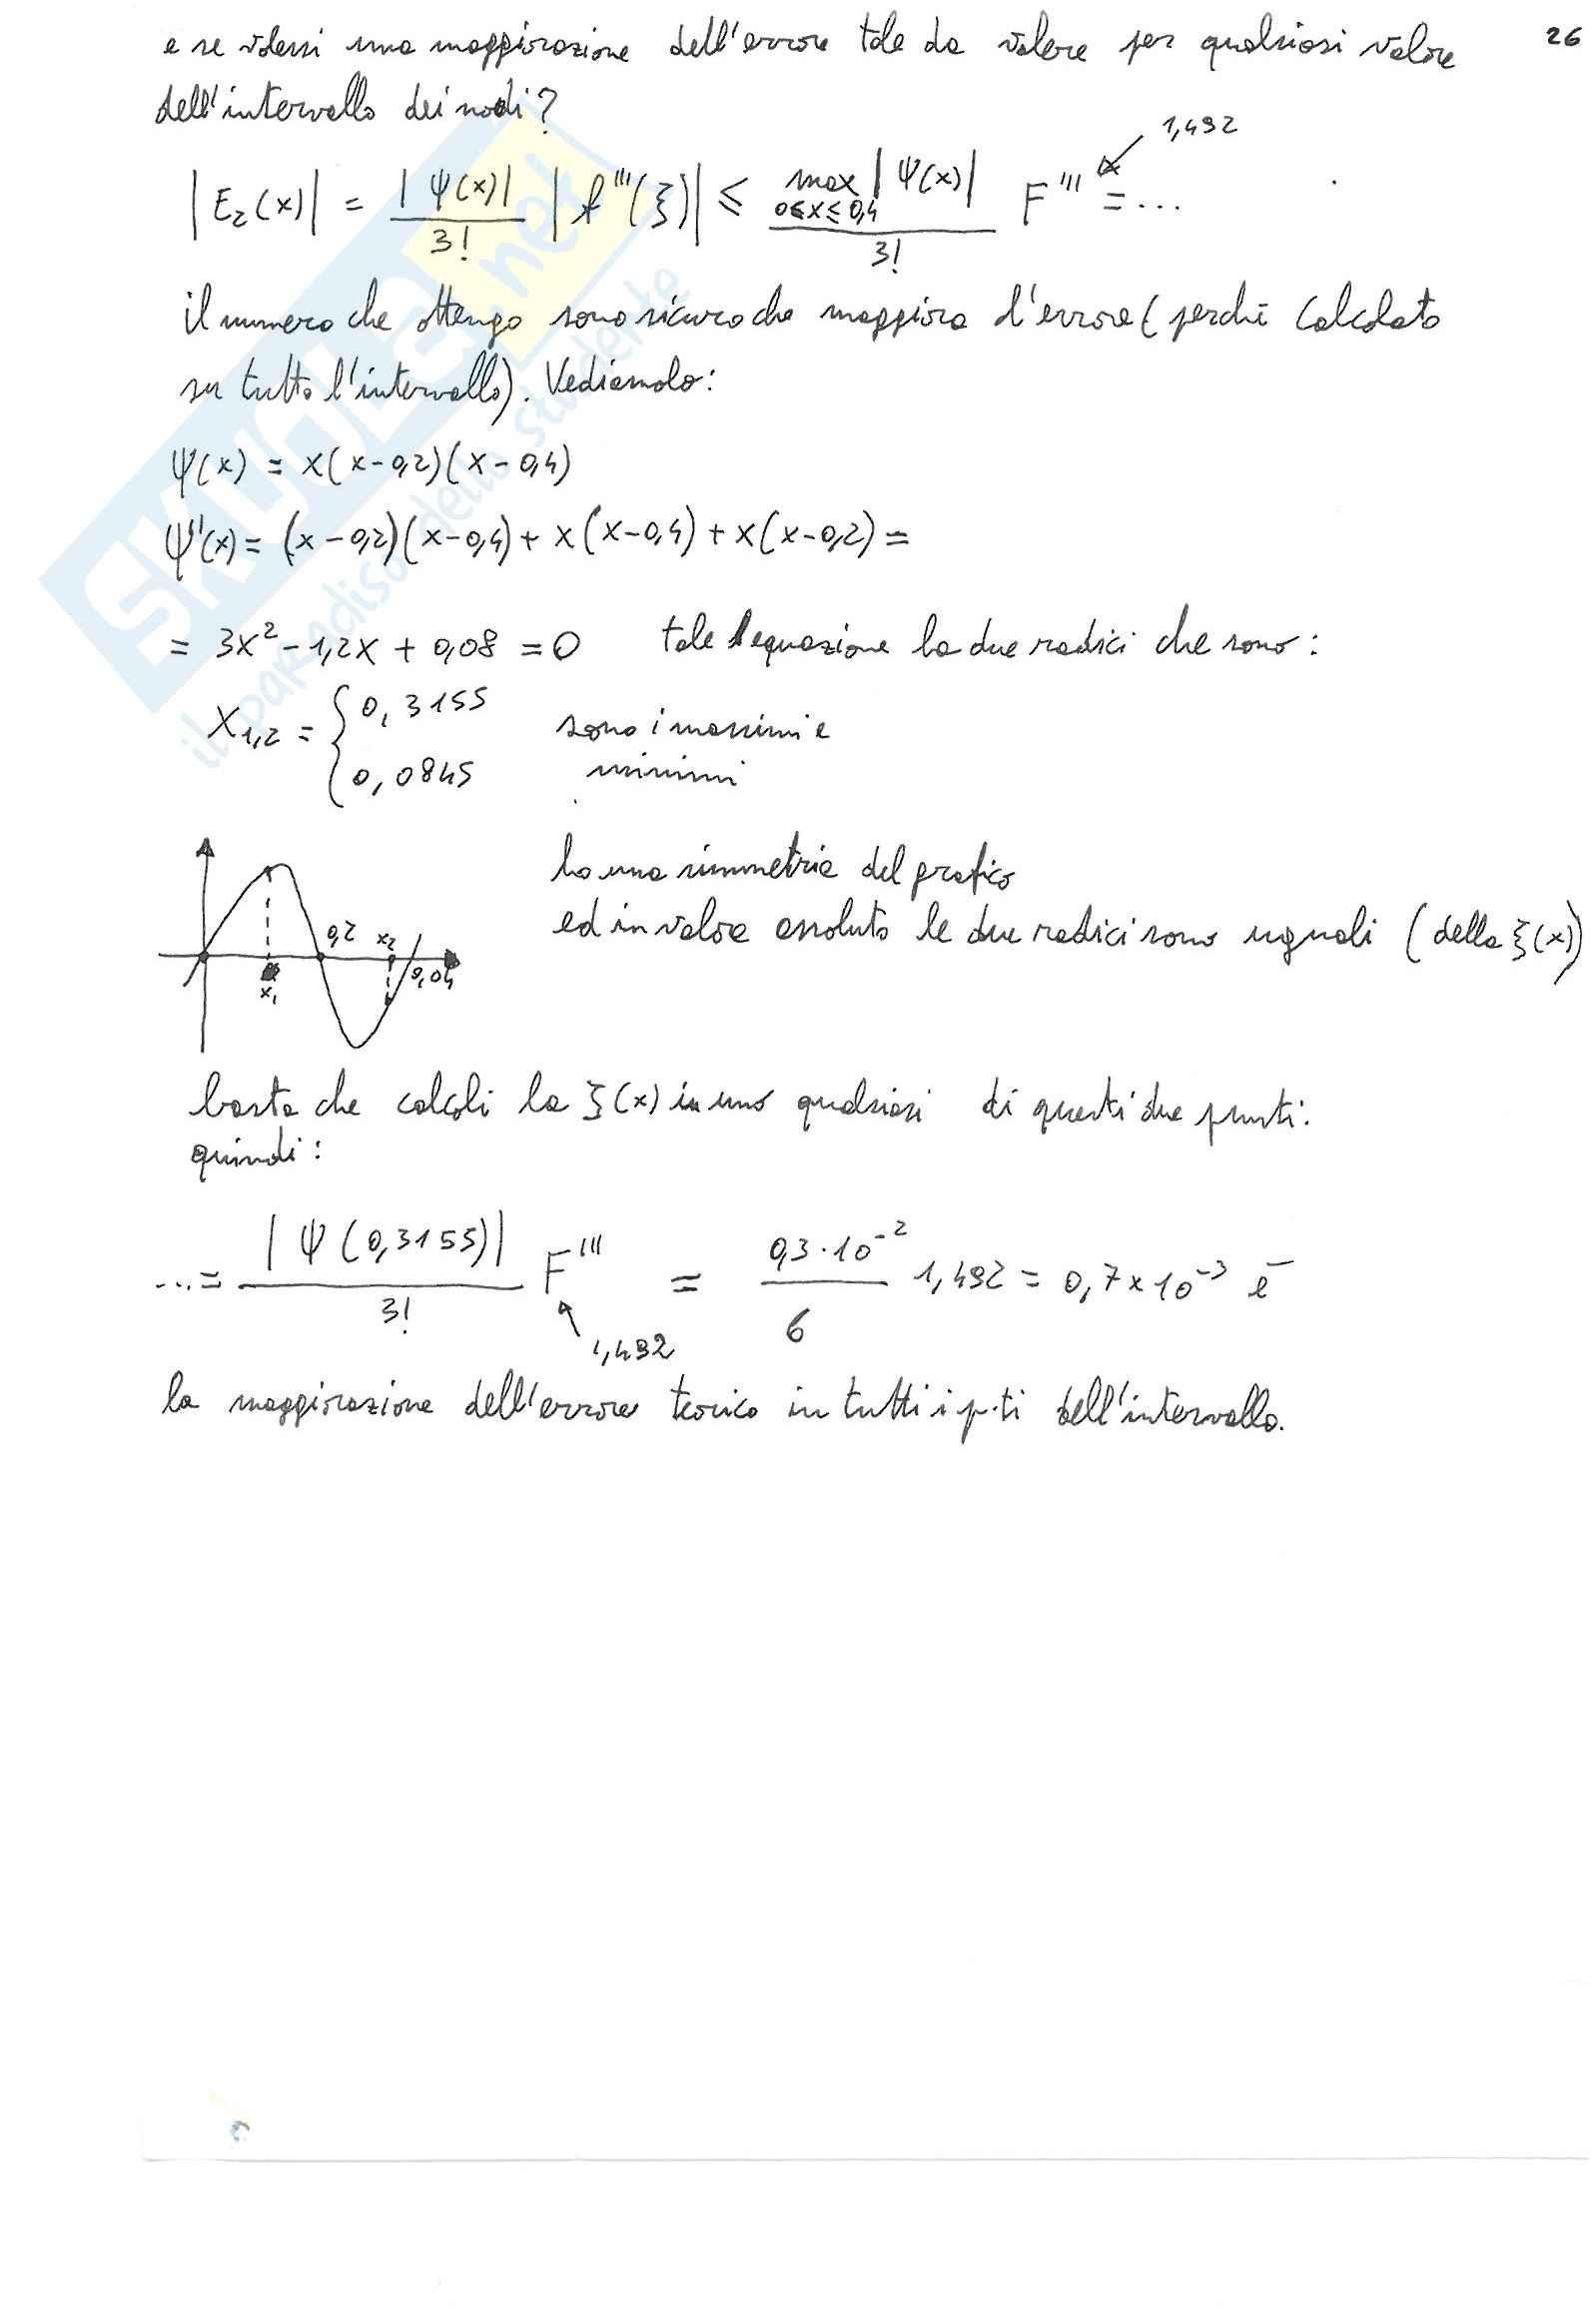 e se volessi una maggiorazione dell'errore tale da valere per qualsiasi valore 26
dell'intervallo dei nodi?
1,492
|E₂(x)| = |Ψ(x)| / 3! |f'''(ξ)| ≤ max 0≤x≤0,4 |Ψ(x)| / 3! F''' = ...
il numero che ottengo sono sicuro che maggiora l'errore (perchè calcolato
su tutto l'intervallo). Vediamolo:
Ψ(x) = x(x-0,2)(x-0,4)
Ψ'(x) = (x-0,2)(x-0,4) + x(x-0,4) + x(x-0,2) =
= 3x² - 1,2x + 0,08 = 0 tale equazione ha due radici che sono:
x₁,₂ = { 0,3155 sono i massimi e
0,0845 minimi
ha una simmetria del grafico
ed in valore assoluto le due radici sono uguali (della ξ(x))
0,2 x₂
x₁ 0,04
basta che calcoli la ξ(x) in uno qualsiasi di questi due punti.
quindi:
... = |Ψ(0,3155)| / 3! F''' = 0,3·10⁻² / 6 1,492 = 0,7×10⁻³ è
1,492
la maggiorazione dell'errore teorico in tutti i p.ti dell'intervallo.
SKUOLA.net
il paradiso dello studente